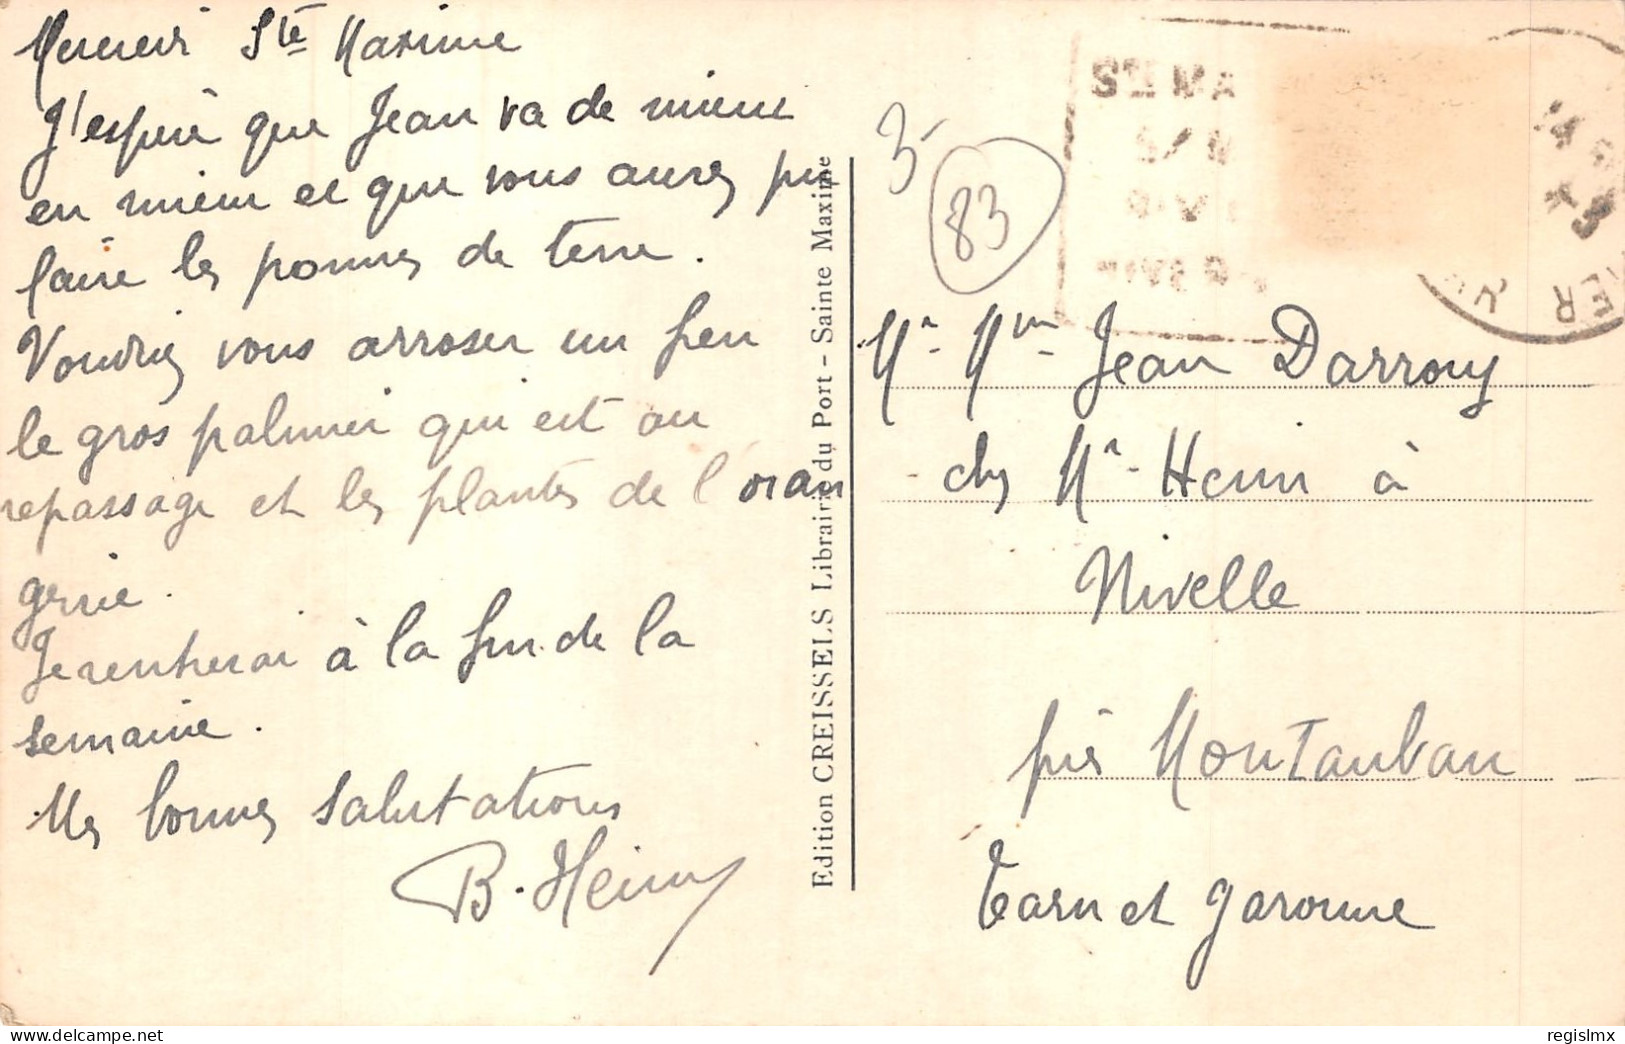 Mercredi Ste Maxime
J'espère que Jean va de mieux
en mieux et que vous aurez pu
faire les pommes de terre.
Voudriez vous arroser un peu
le gros palmier qui est au
repassage et les plantes de l'oran
gerie.
Je rentrerai à la fin de la
semaine.
Mes bonnes salutations
B. Heim
Edition CREISSELS Librairie du Port - Sainte Maxime
3-
83
STE MA
Mr Mme Jean Darrouy
chez Mr Heim à
Nivelle
près Montauban
Tarn et Garonne
regislmx
© www.delcampe.net